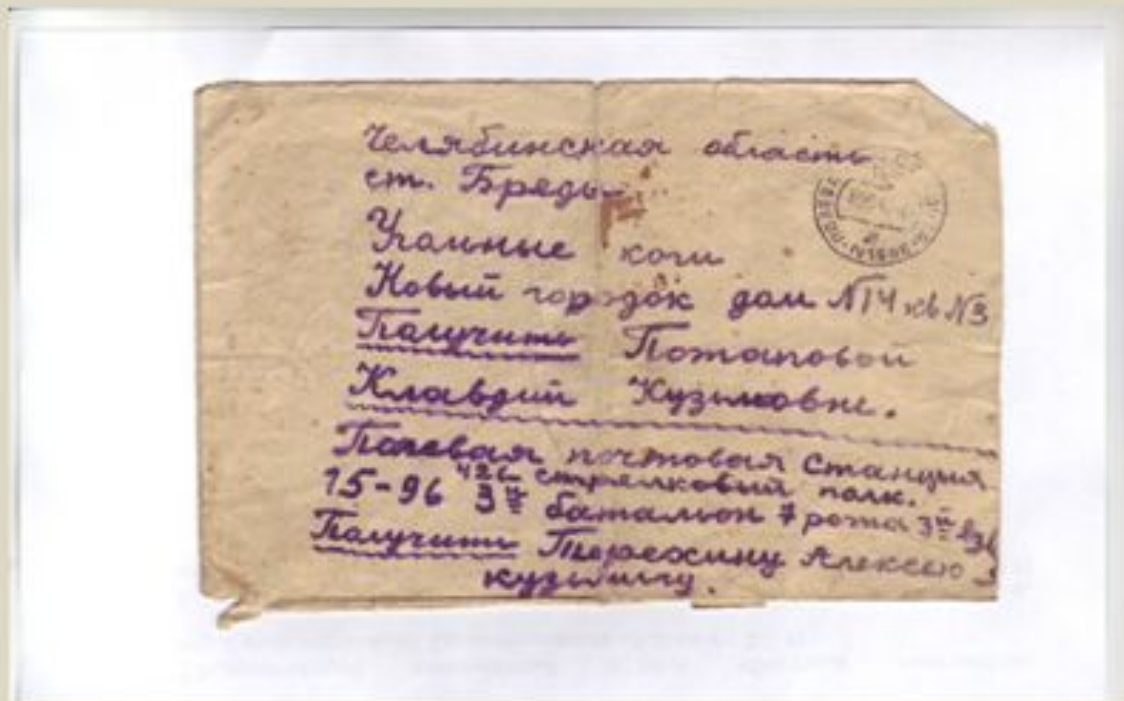 Челябинская область
ст. Бреды
Угольные копи
Новый городок дом №14 кв №3
Получить Потаповой
Клавдии Кузьмовне.
Полевая почтовая станция
15-96 426 стрелковый полк.
3й батальон 7 рота 3й взв
Получить Терехину Алексею
кузьмичу.